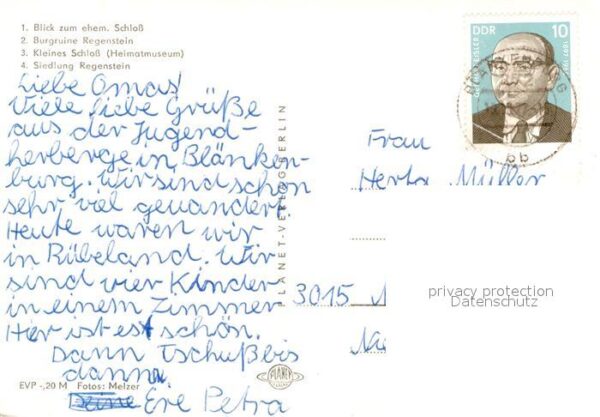 1. Blick zum ehem. Schloß
2. Burgruine Regenstein
3. Kleines Schloß (Heimatmuseum)
4. Siedlung Regenstein
Liebe Omas!
Viele liebe Grüße
aus der Jugend-
herberge in Blänken-
burg. Wir sind schon
sehr viel gewandert
Heute waren wir
in Rübeland. Wir
sind vier Kinder
in einem Zimmer
Hier ist est schön.
Dann Tschußbis
dann
Deine Eve Petra
EVP -,20 M Fotos: Melzer
PLANET-VERLAG BERLIN
PLANET
DDR 10
Frau
Herta Müller
3015
privacy protection
Datenschutz
bb